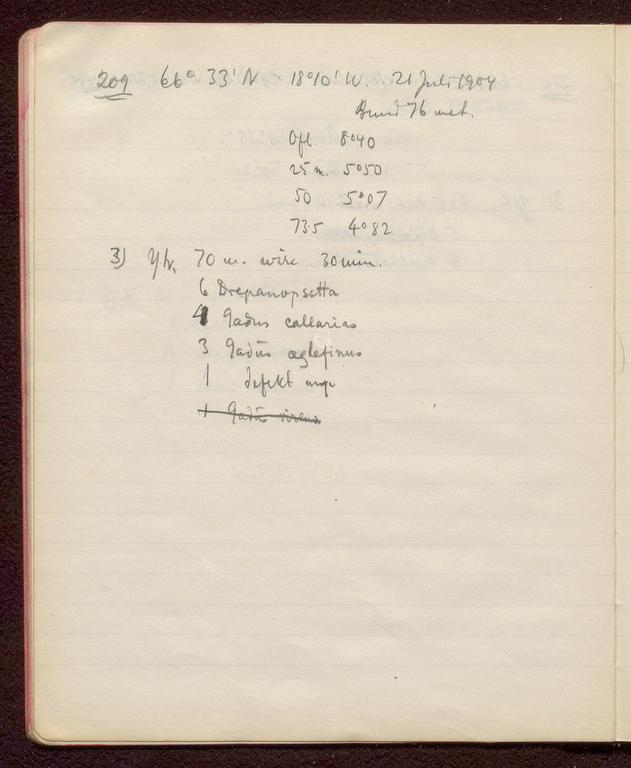 209 66° 33' N 18°10' W. 21 Juli 1904
Bund 76 met.
Ofl. 8°40
25 m. 5°50
50 5°07
73.5 4°82
3) Ytr. 70 m. wire 30 min.
6 Drepanopsetta
4 Gadus callarias
3 Gadus æglefinus
1 defekt unge
1 Gadus virens